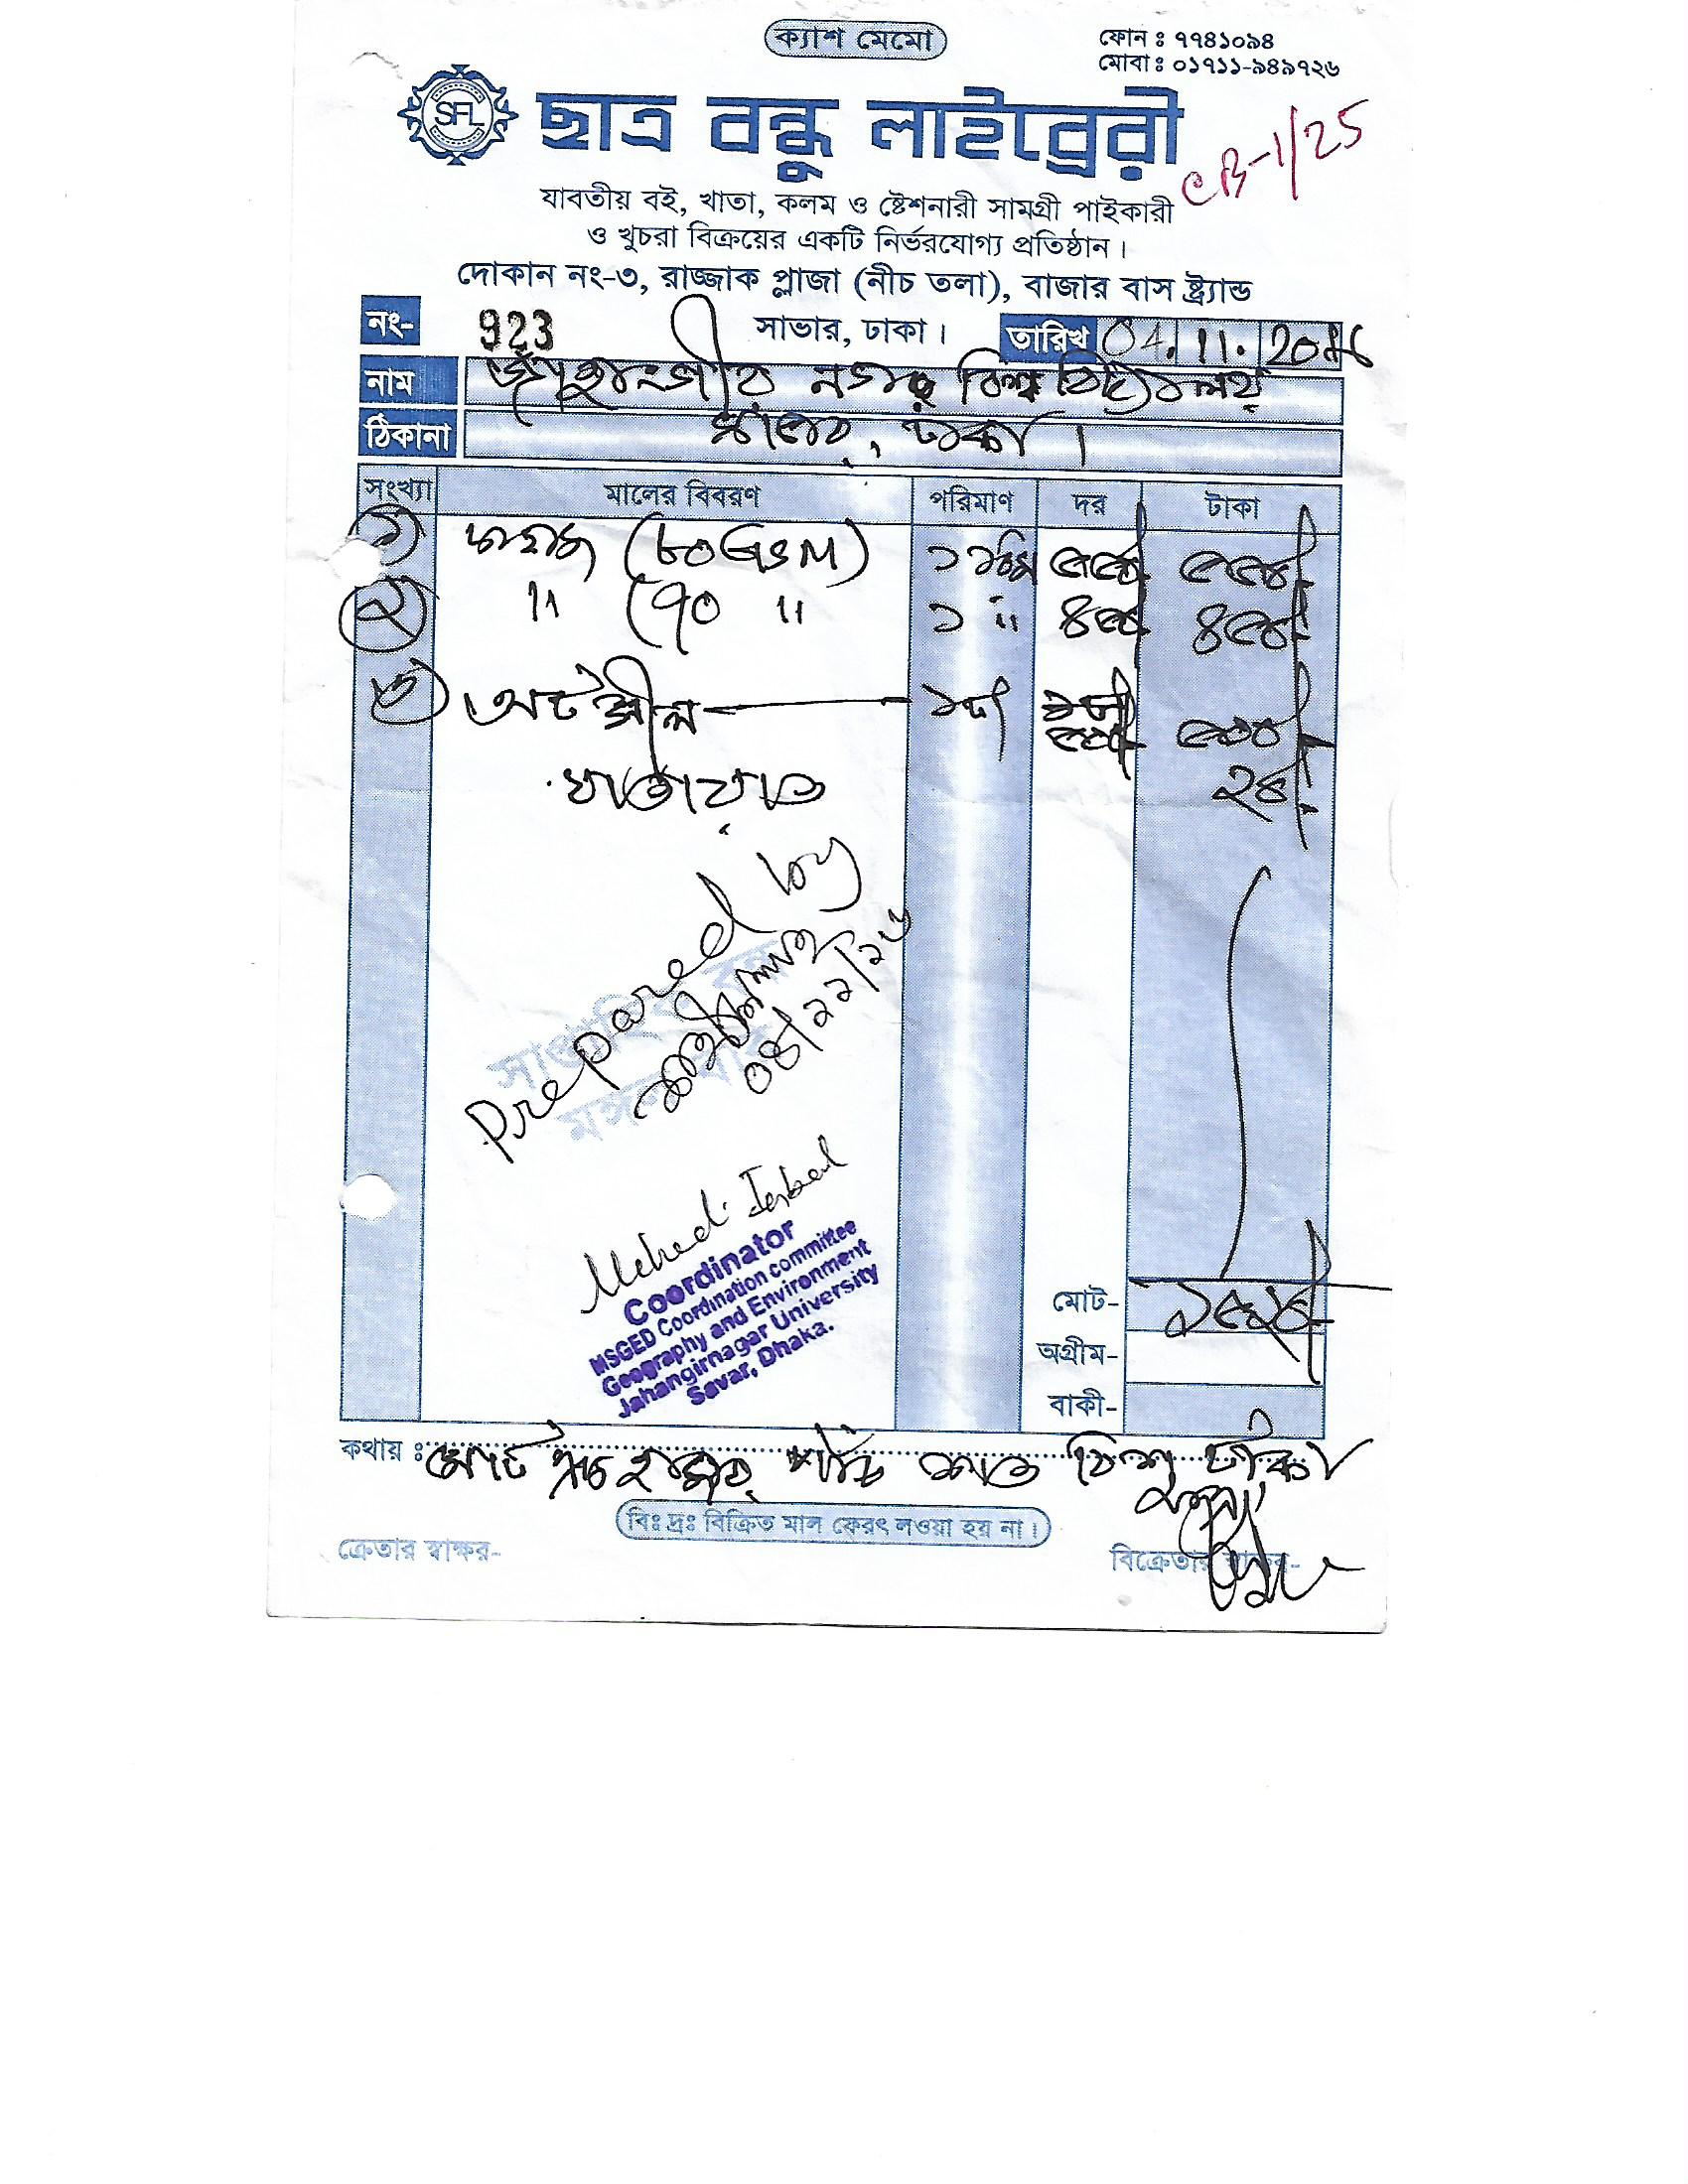 ক্যাশ মেমো
ফোন ঃ ৭৭৪১০৯৪
মোবা ঃ ০১৭১১-৯৪৯৭২৬
SFL
ছাত্র বন্ধু লাইব্রেরী
CB-1/25
যাবতীয় বই, খাতা, কলম ও ষ্টেশনারী সামগ্রী পাইকারী
ও খুচরা বিক্রয়ের একটি নির্ভরযোগ্য প্রতিষ্ঠান।
দোকান নং-৩, রাজ্জাক প্লাজা (নীচ তলা), বাজার বাস ষ্ট্র্যান্ড
নং- 923 সাভার, ঢাকা। তারিখ 04.11.2016
নাম জাহাংগীর নগর বিশ্ববিদ্যালয়
ঠিকানা সাভার, ঢাকা।
সংখ্যা মালের বিবরণ পরিমাণ দর টাকা
১) কাগজ (৮০ GSM) ১ রিম ৫৫০/- ৫৫০/-
২) " (৭০ " ১ " ৪৫০/- ৪৫০/-
৩) অটোসীল ১টা ৫০০/- ৫০০/-
যাতায়াত ২০/-
Prepared by
০৪/১১/১৬
সাপ্তাহিক বন্ধ
মঙ্গলবার
Mehedi Iqbal
Coordinator
MSGED Coordination committee
Geography and Environment
Jahangirnagar University
Savar, Dhaka.
মোট- ১৫২০/-
অগ্রীম-
বাকী-
কথায় ঃ মোট এক হাজার পাঁচ শত বিশ টাকা
বিঃ দ্রঃ বিক্রিত মাল ফেরৎ লওয়া হয় না।
ক্রেতার স্বাক্ষর- বিক্রেতার স্বাক্ষর-